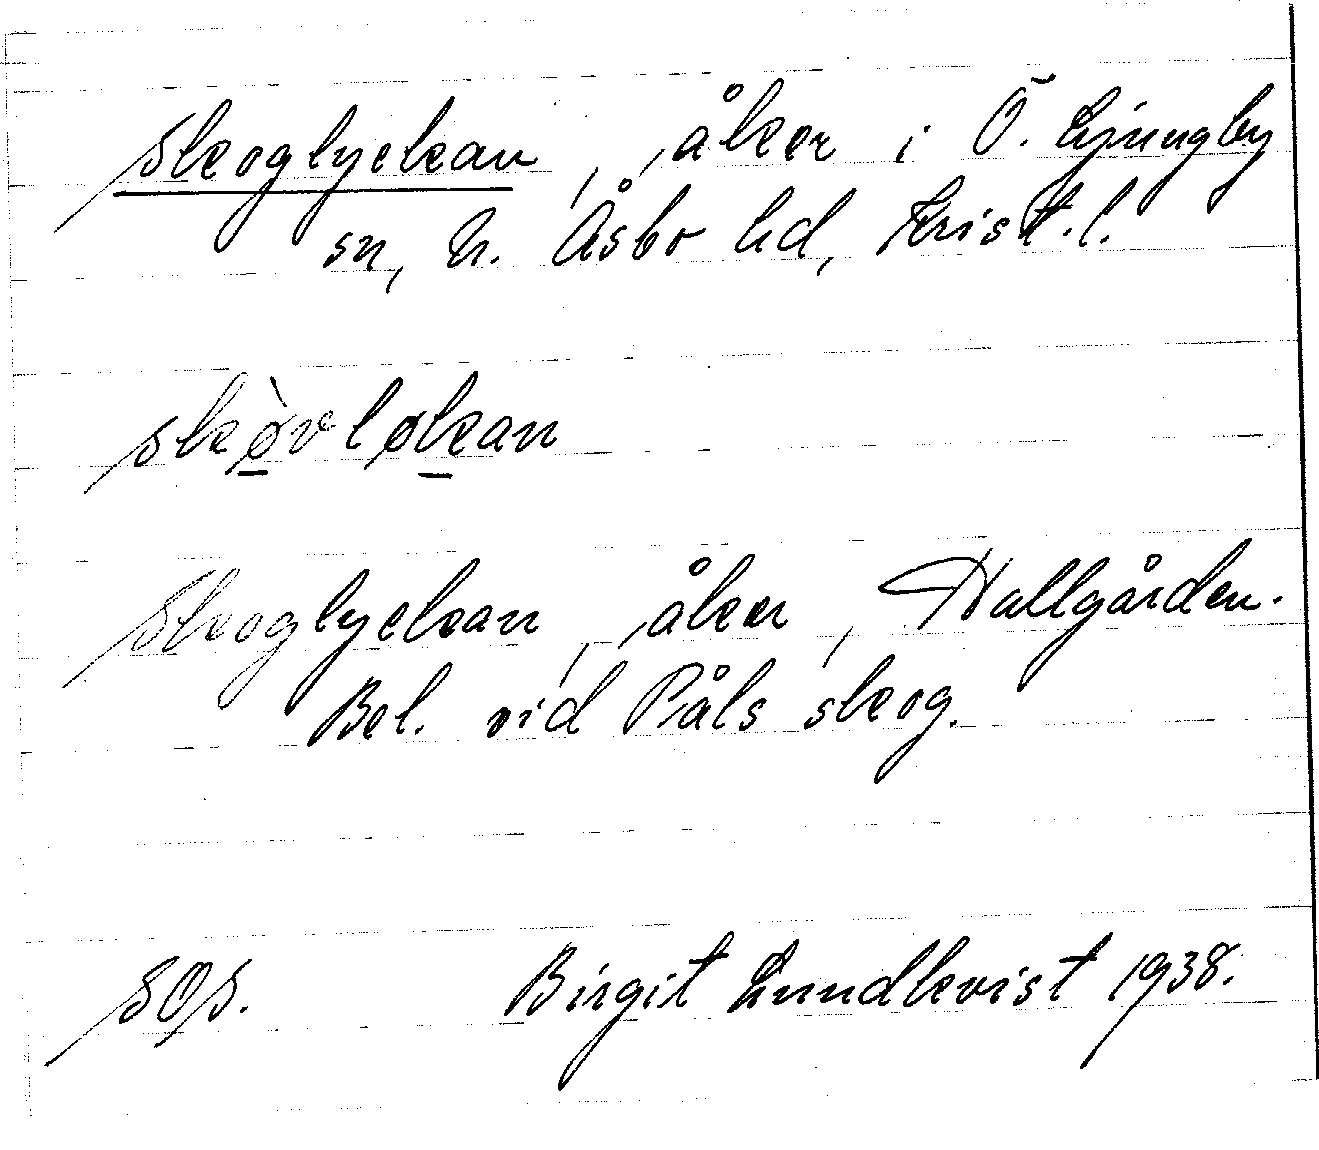 Skoglyckan, åker i Ö. Ljungby
sn, N. Åsbo hd, Krist. l.
skø̀vløkan
Skoglyckan, åker, Hallgården.
Bel. vid Påls skog.
SOS. Birgit Lundkvist 1938.